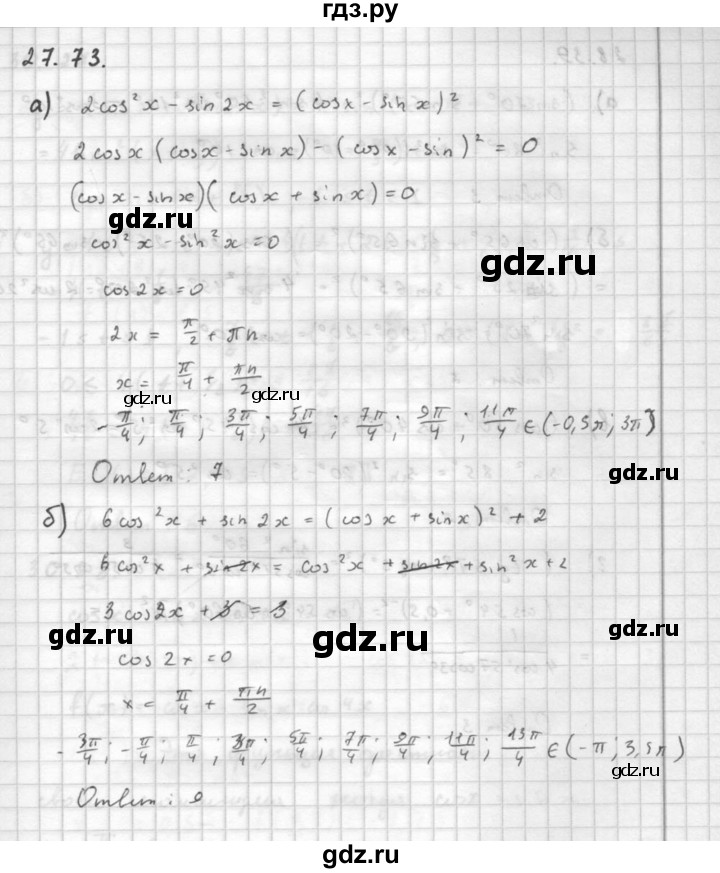 гдз.ру
27.73.
а) 2cos²x - sin 2x = (cosx - sin x)²
2 cosx (cosx - sin x) - (cosx - sin)² = 0
(cosx - sinx)(cosx + sinx) = 0
gdz.ru
cos²x - sin²x = 0
gdz.ru
cos 2x = 0
2x = π/2 + πn
x = π/4 + πn/2
gdz.ru gdz.ru
-π/4; π/4; 3π/4; 5π/4; 7π/4; 9π/4; 11π/4 ∈ (-0,5π; 3π)
Ответ: 7
gdz.ru
б) 6cos²x + sin 2x = (cosx + sinx)² + 2
6cos²x + sin 2x = cos²x + sin 2x + sin²x + 2
3 cos2x + 3 = 3
gdz.ru gdz.ru gdz.ru
cos 2x = 0
x = π/4 + πn/2
-3π/4; -π/4; π/4; 3π/4; 5π/4; 7π/4; 9π/4; 11π/4; 13π/4 ∈ (-π; 3,5π)
gdz.ru gdz.ru
Ответ: 9
gdz.ru
gdz.ru